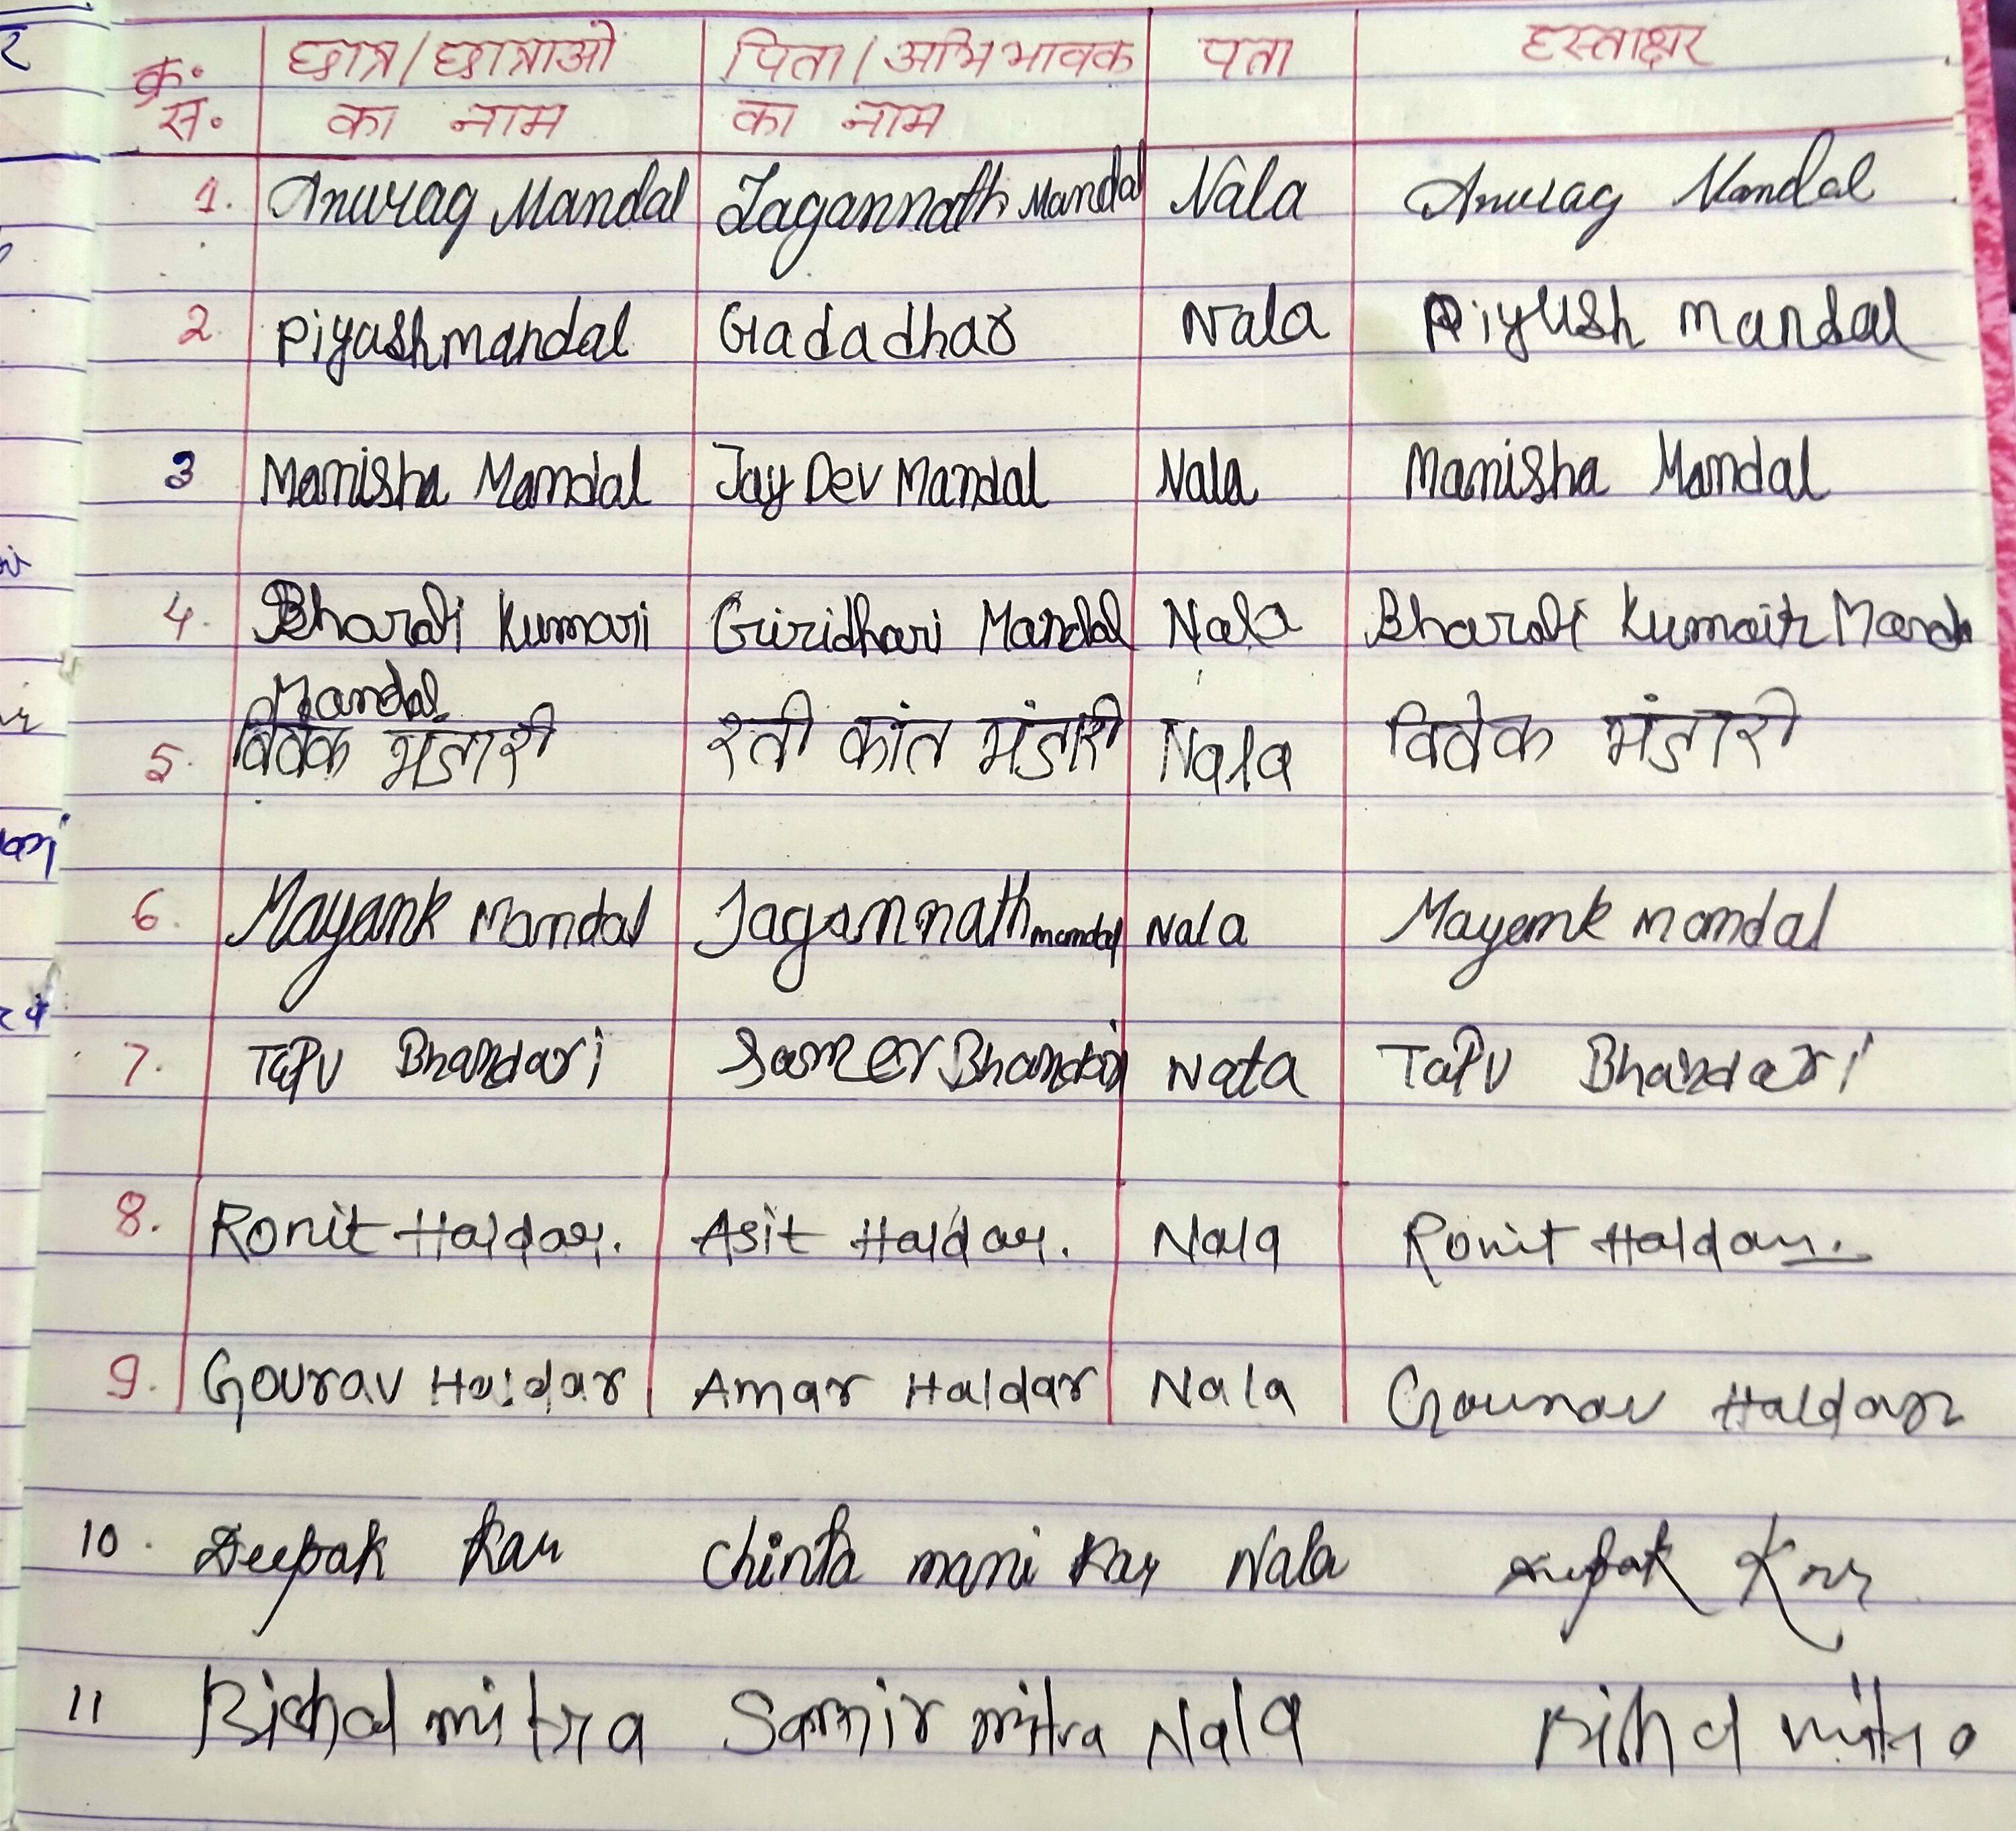 क्र. छात्र/छात्राओ पिता/अभिभावक पता हस्ताक्षर
स. का नाम का नाम
1. Anurag Mandal Jagannath Mandal Nala Anurag Mandal
2. Piyashmandal Gadadhar Nala Piyush mandal
3 Manisha Mandal Jay Dev Mandal Nala Manisha Mandal
4. Bharati Kumari Giridhari Mandal Nala Bharati Kumari
Mandal
5. विवेक भंडारी रती कांत भंडारी Nala विवेक भंडारी
6. Mayank Mandal Jagannath mandal Nala Mayank mandal
7. TaPU Bhandari Bhandari Nata TaPU Bhandari
8. Ronit Haldar. Asit Haldar. Nala Ronit Haldar.
9. Gourav Haldar Amar Haldar Nala Gourav Haldar
10. Deepak Kar Chinta mani Kar Nala Deepak Kar
11 Bishal mitra Samir mitra Nala mitra